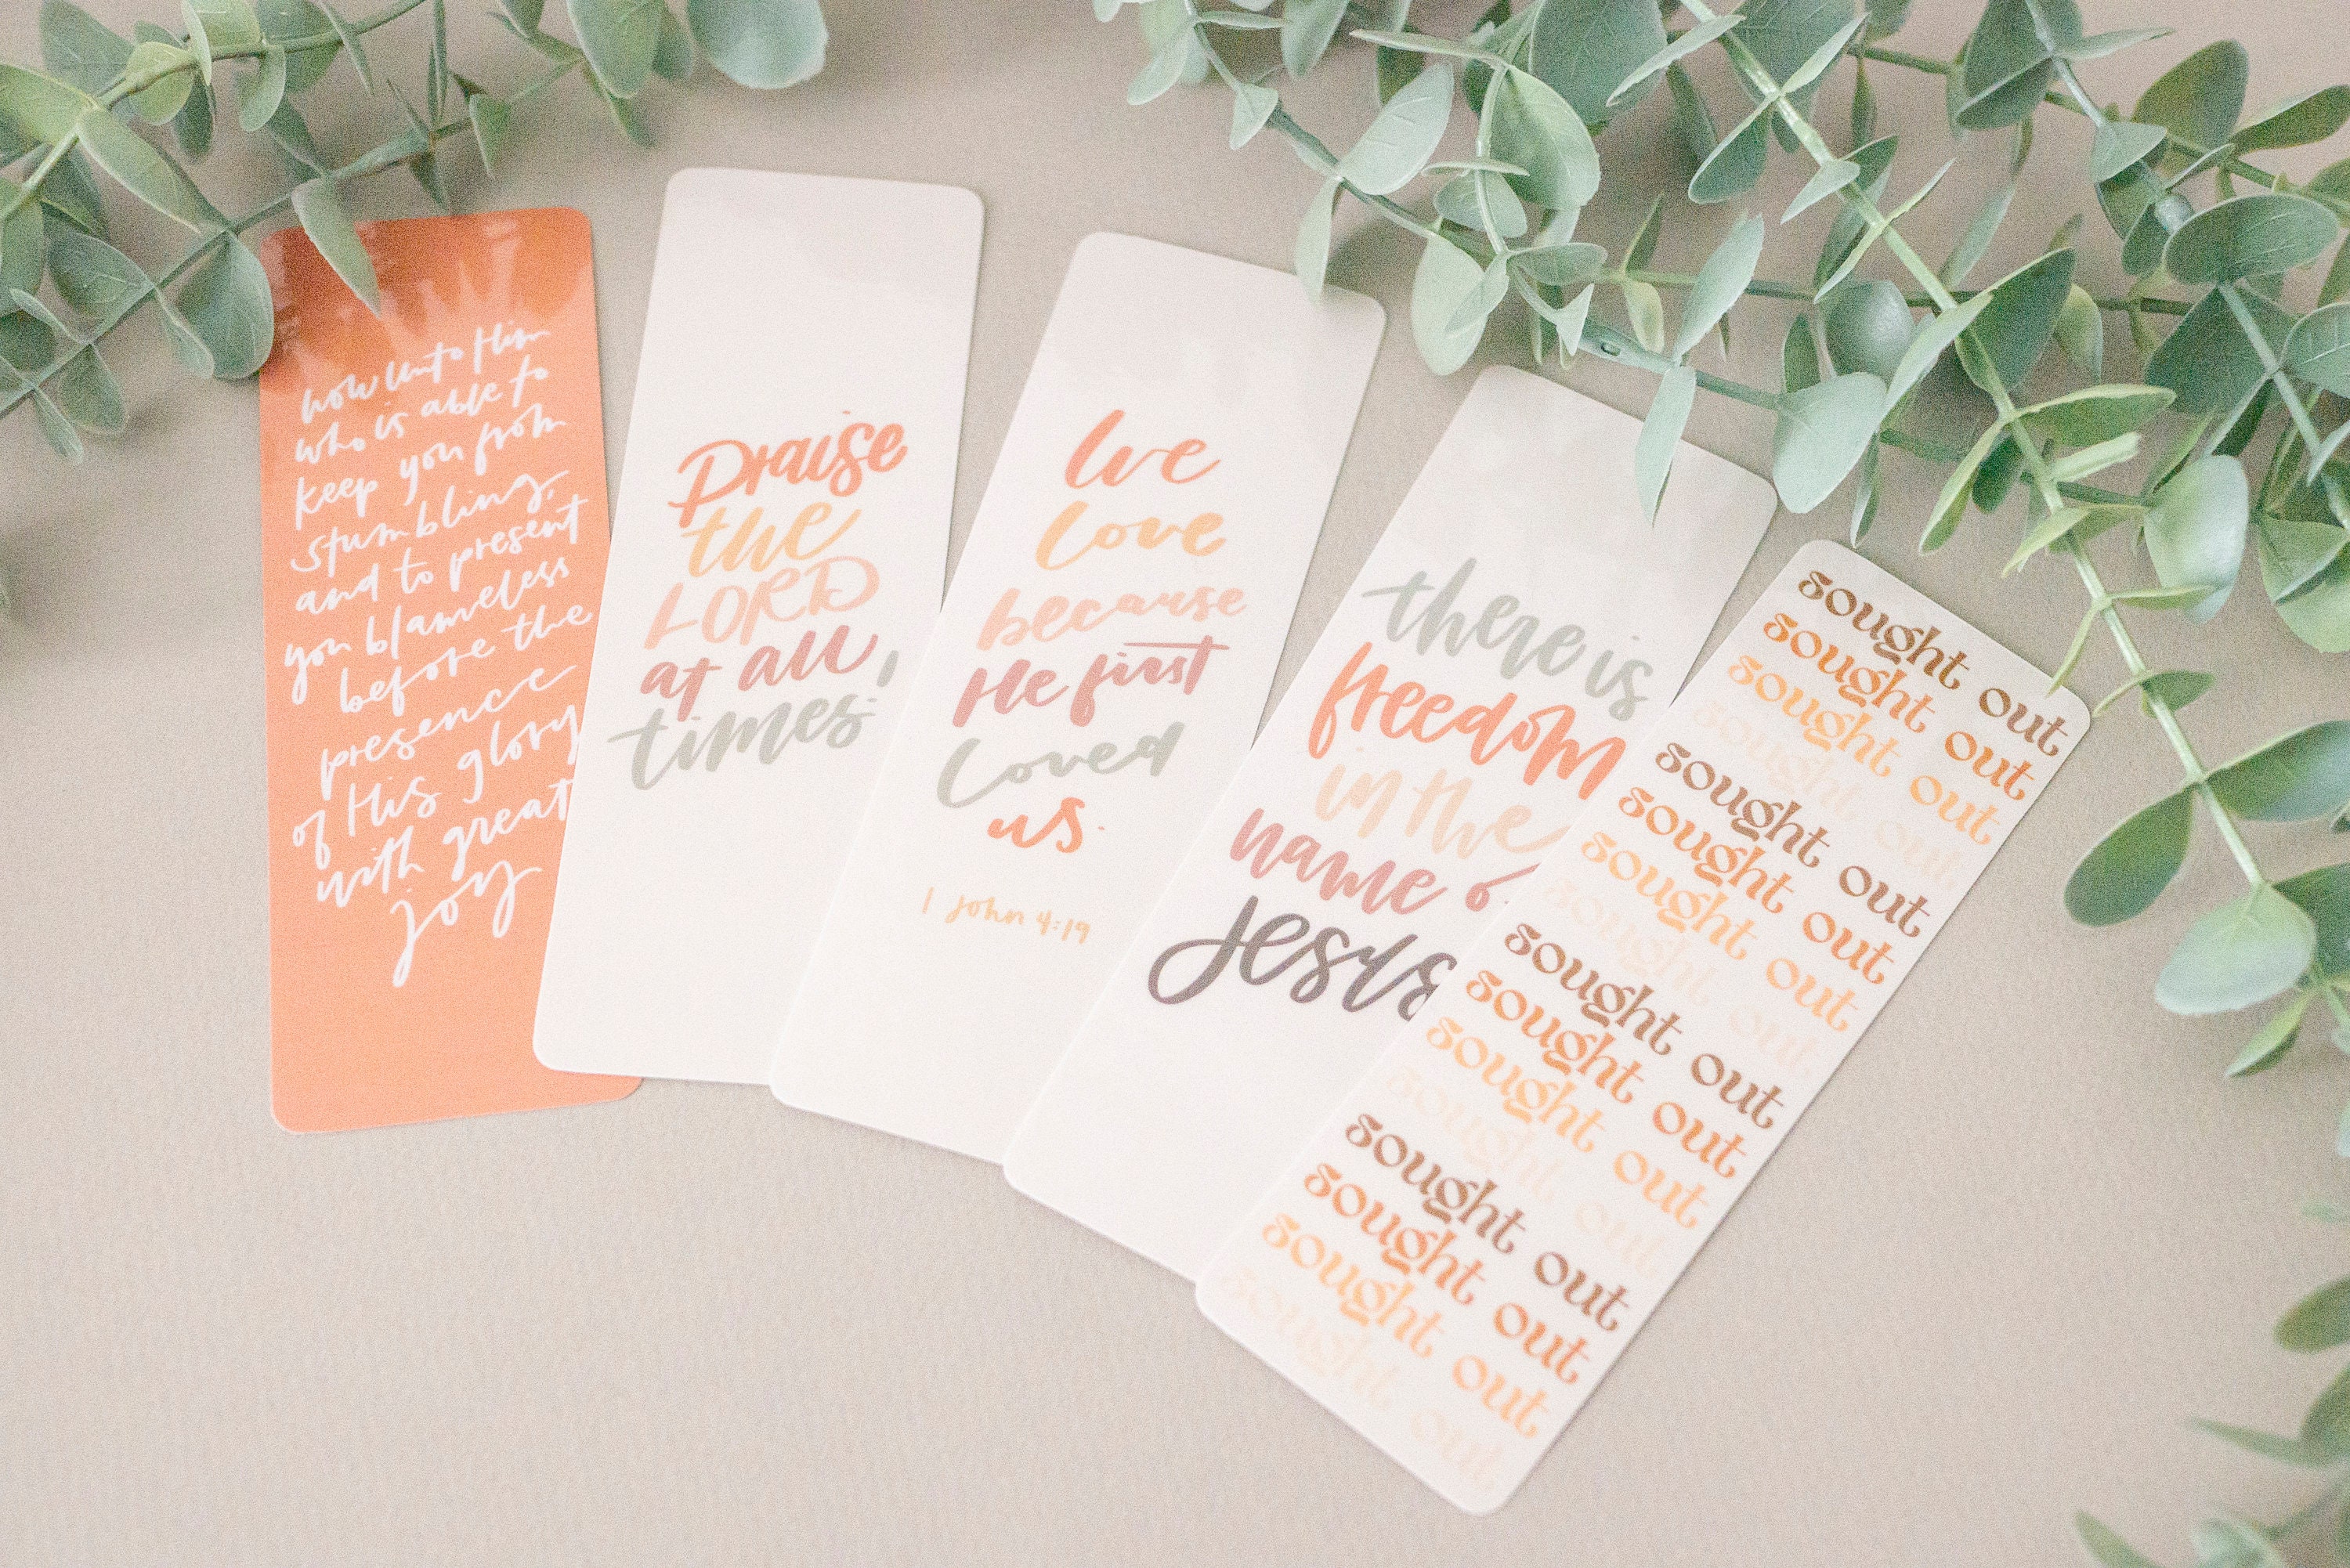 now unto Him
who is able to
keep you from
stumbling,
and to present
you blameless
before the
presence
of His glory
with great
joy
Praise
the
LORD
at all
times!
We
love
because
He first
loved
us.
1 John 4:19
there is
freedom
in the
name o
Jesus
sought out
sought out
sought out
sought out
sought out
sought out
sought out
sought out
sought out
sought out
sought out
sought out
sought out
sought out
sought out
sought out